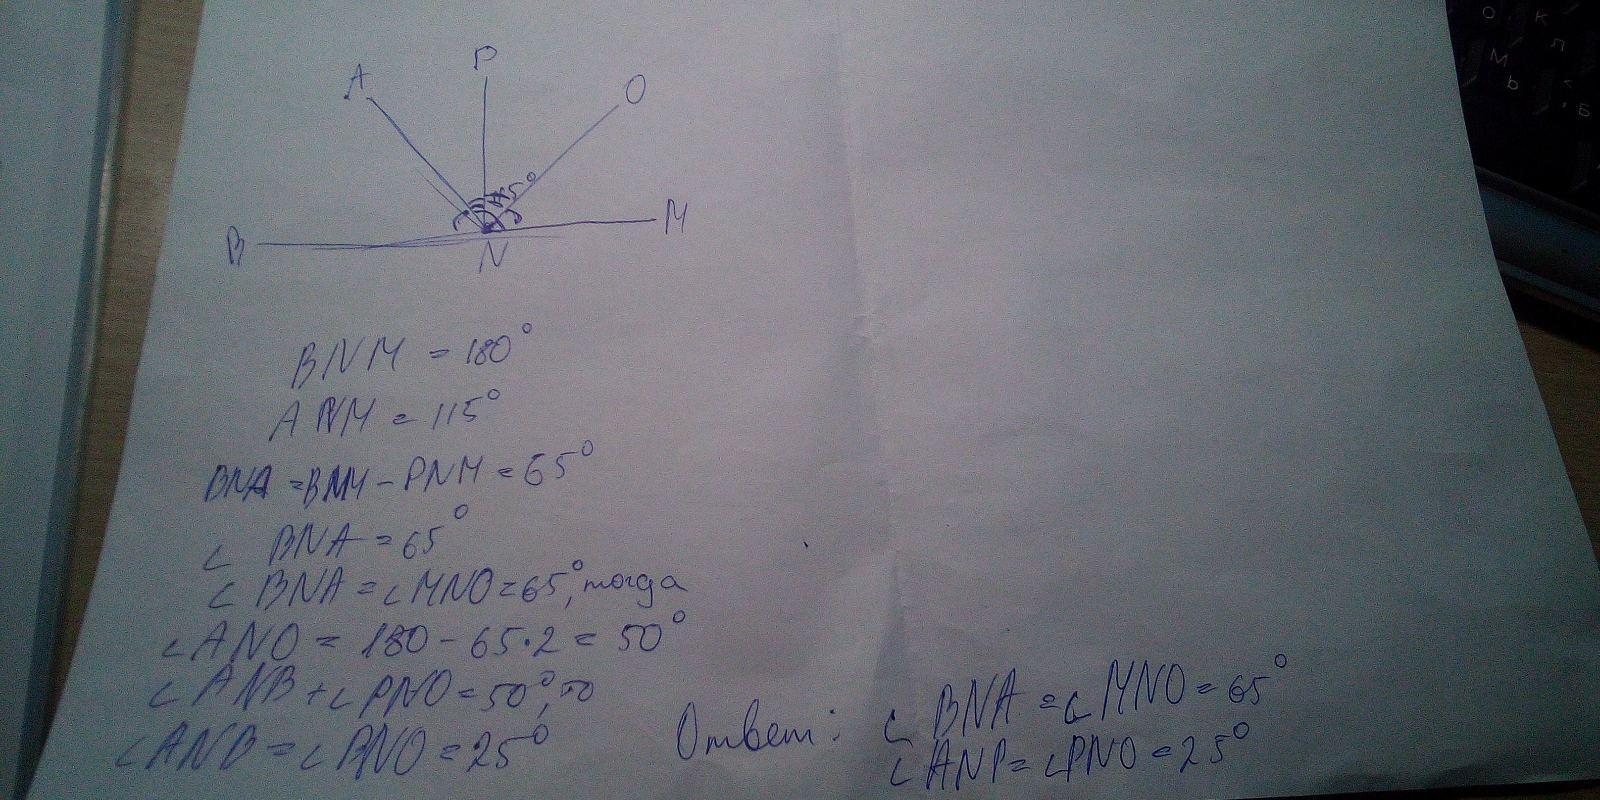 A
P
O
115°
B
N
M
BNM = 180°
ANM = 115°
BNA = BNM - PNM = 65°
∠ BNA = 65°
∠ BNA = ∠MNO = 65°, тогда
∠ANO = 180 - 65·2 = 50°
∠ANB + ∠PNO = 50°, то
∠ANB = ∠PNO = 25°
Ответ: ∠ BNA = ∠ MNO = 65°
∠ ANP = ∠PNO = 25°
О К
М Л
Ь Б